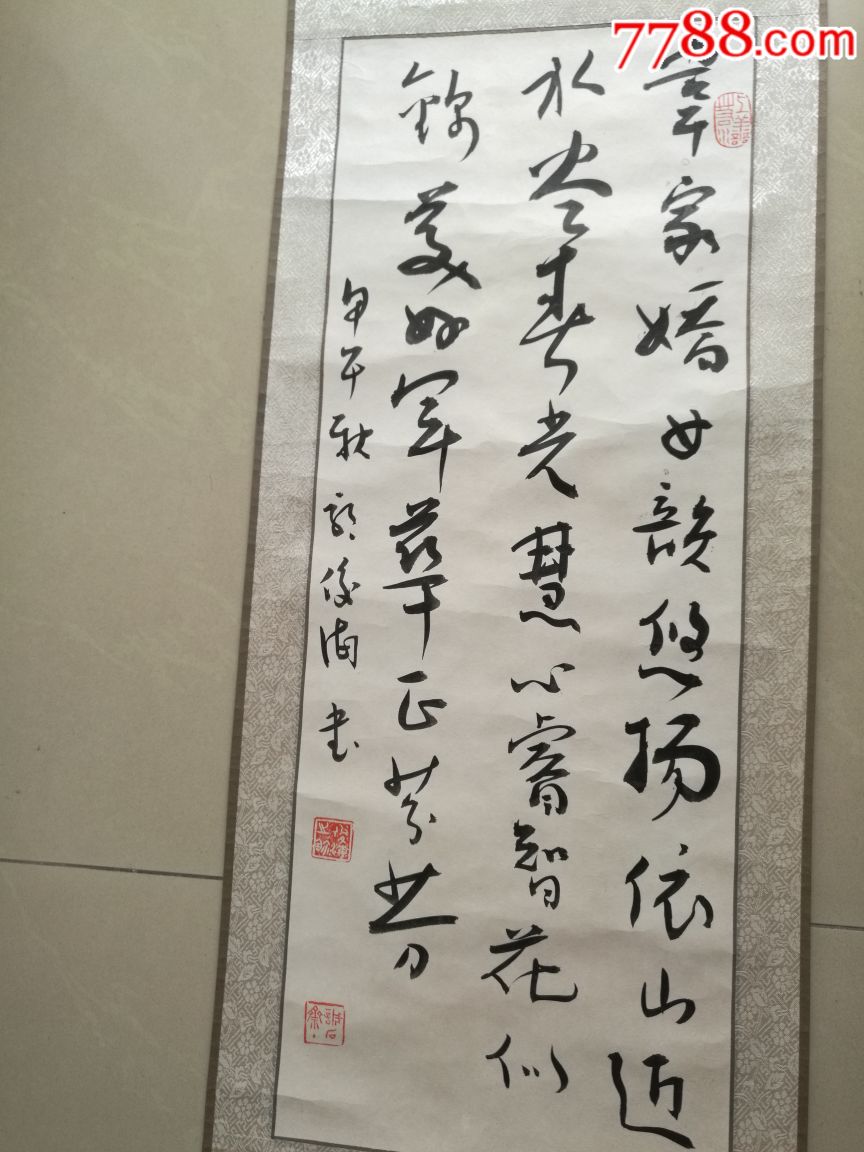 7788.com
家娇女韵悠扬依山近
水尽春光慧心睿智花似
锦美好年华正芬芳
甲午秋 郭俊海 书